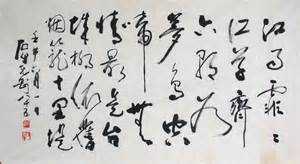 江雨霏〻
江草齊
六朝如
夢鳥空
啼無
情最是台
城柳依舊
烟籠十里堤